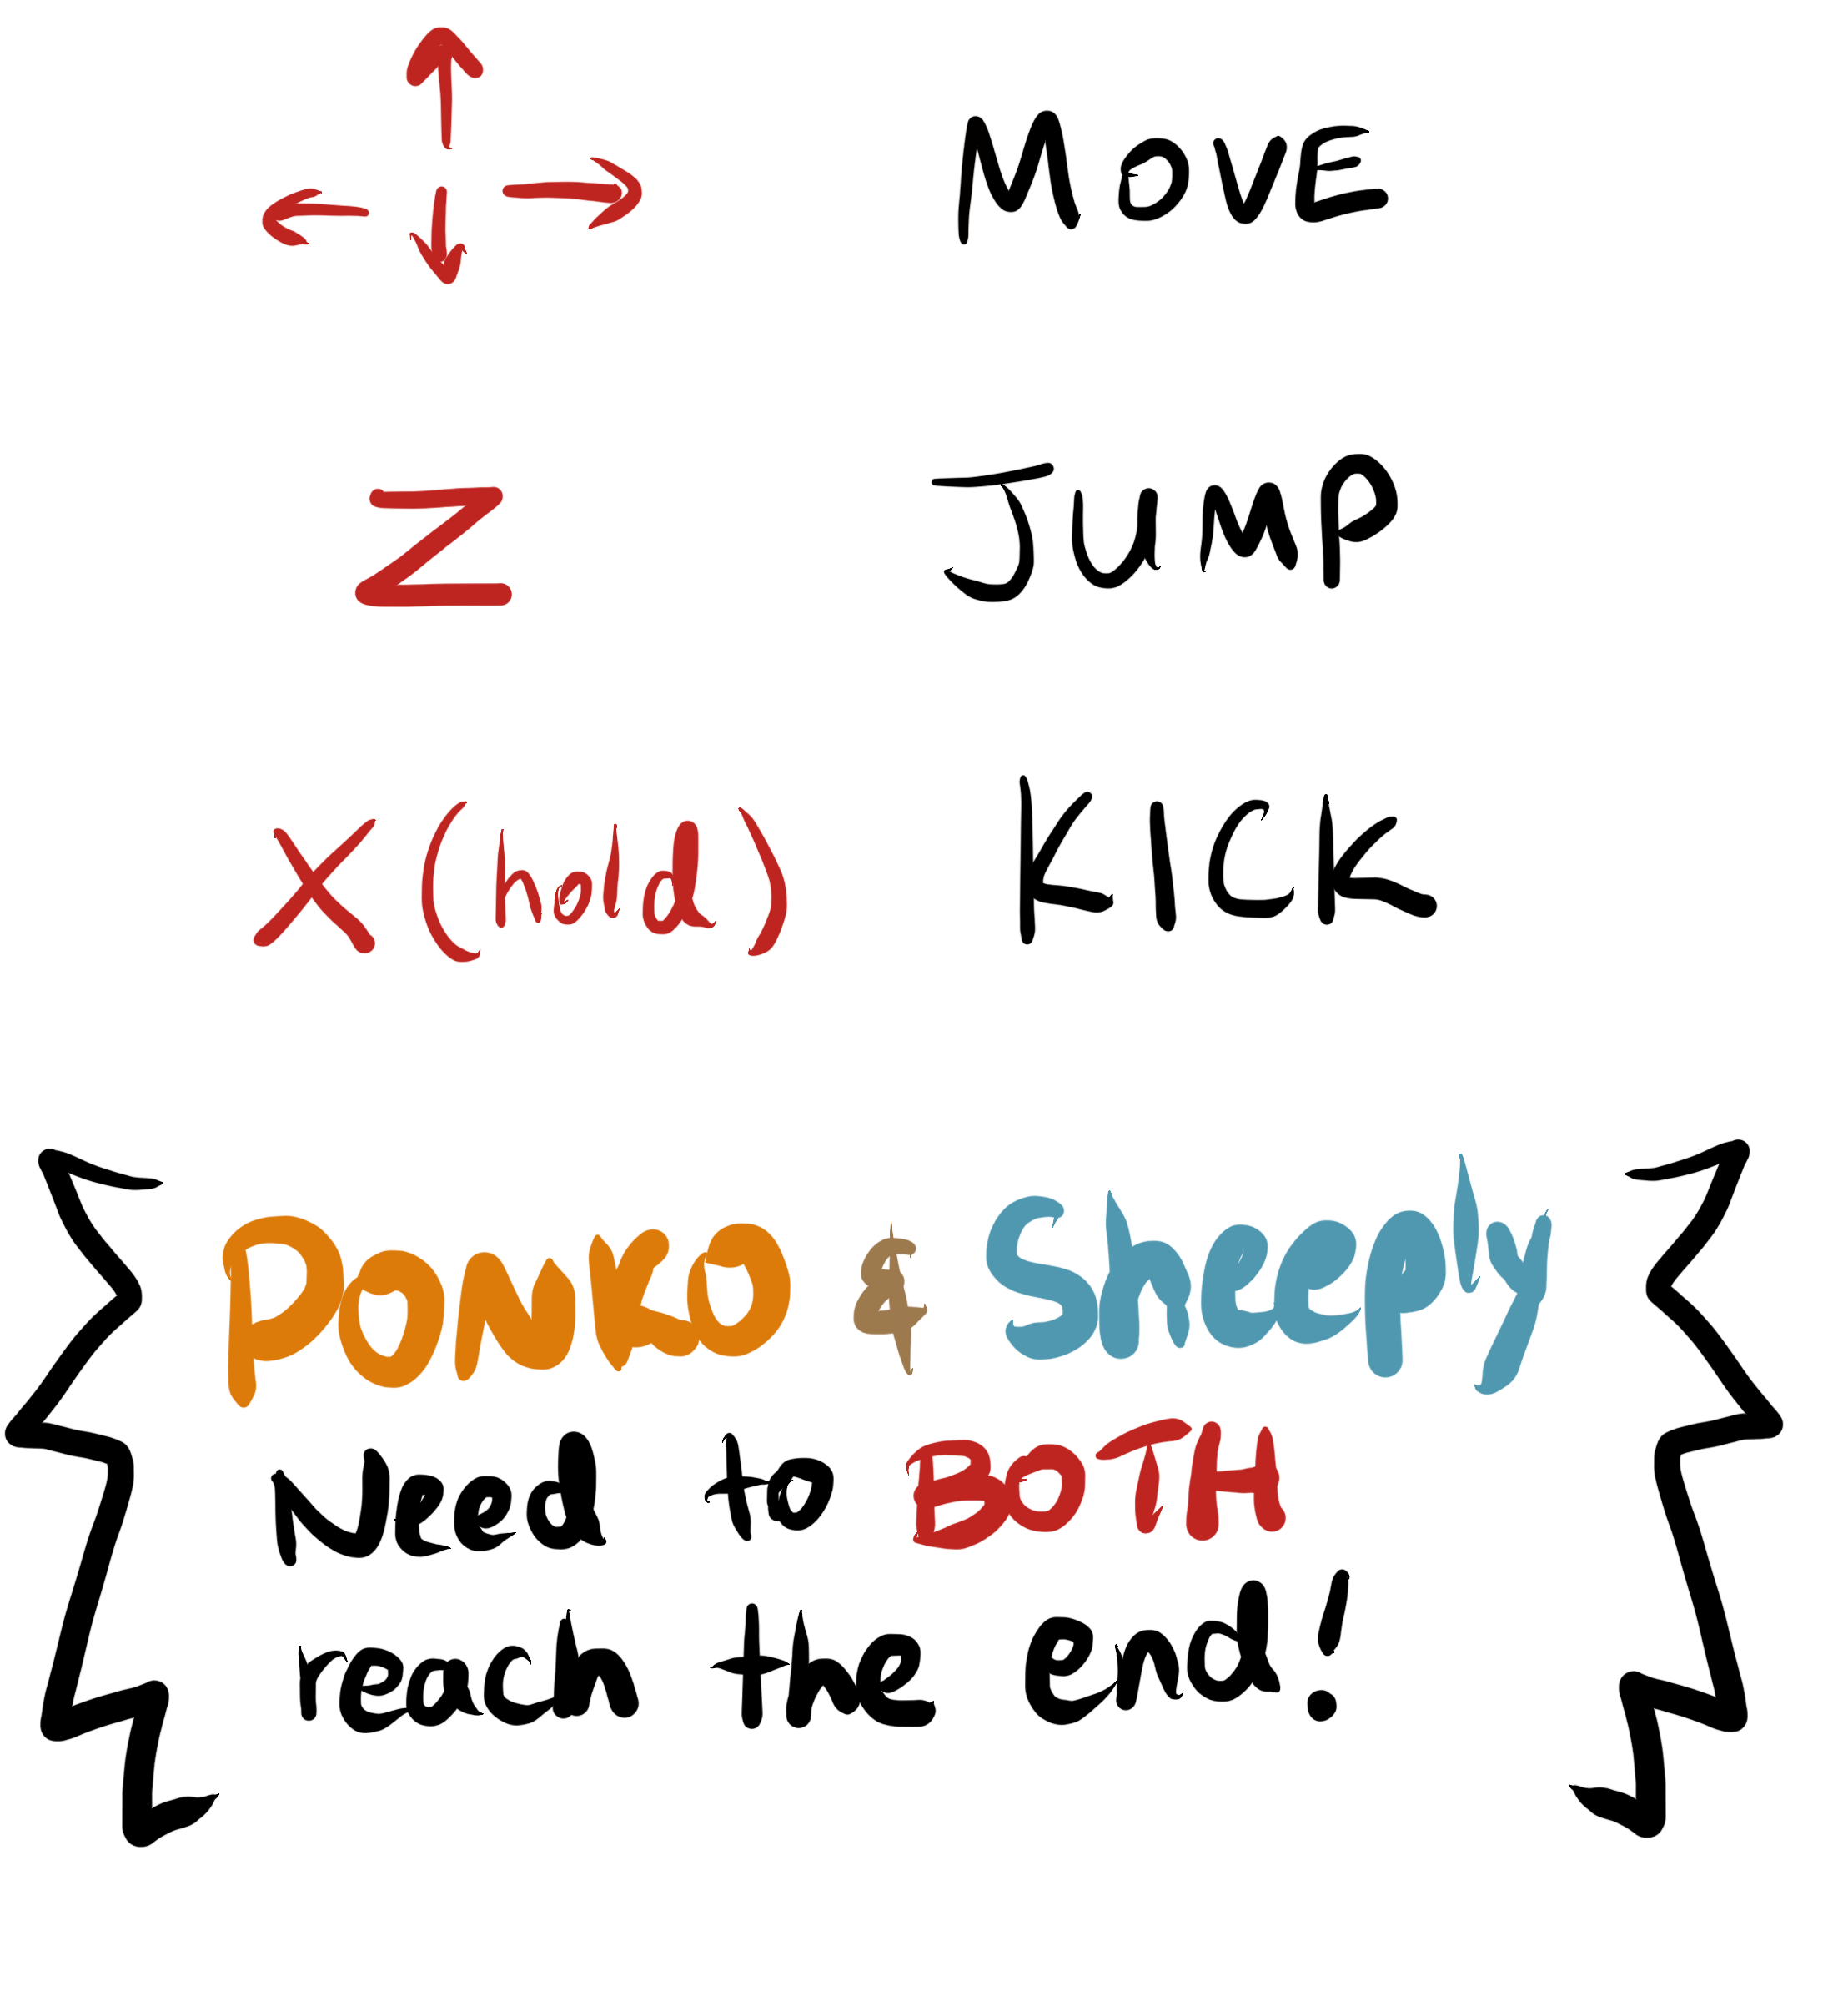 MOVE
Z JUMP
X (hold) KICK
PONKO & Sheeply
Need to BOTH
reach the end!